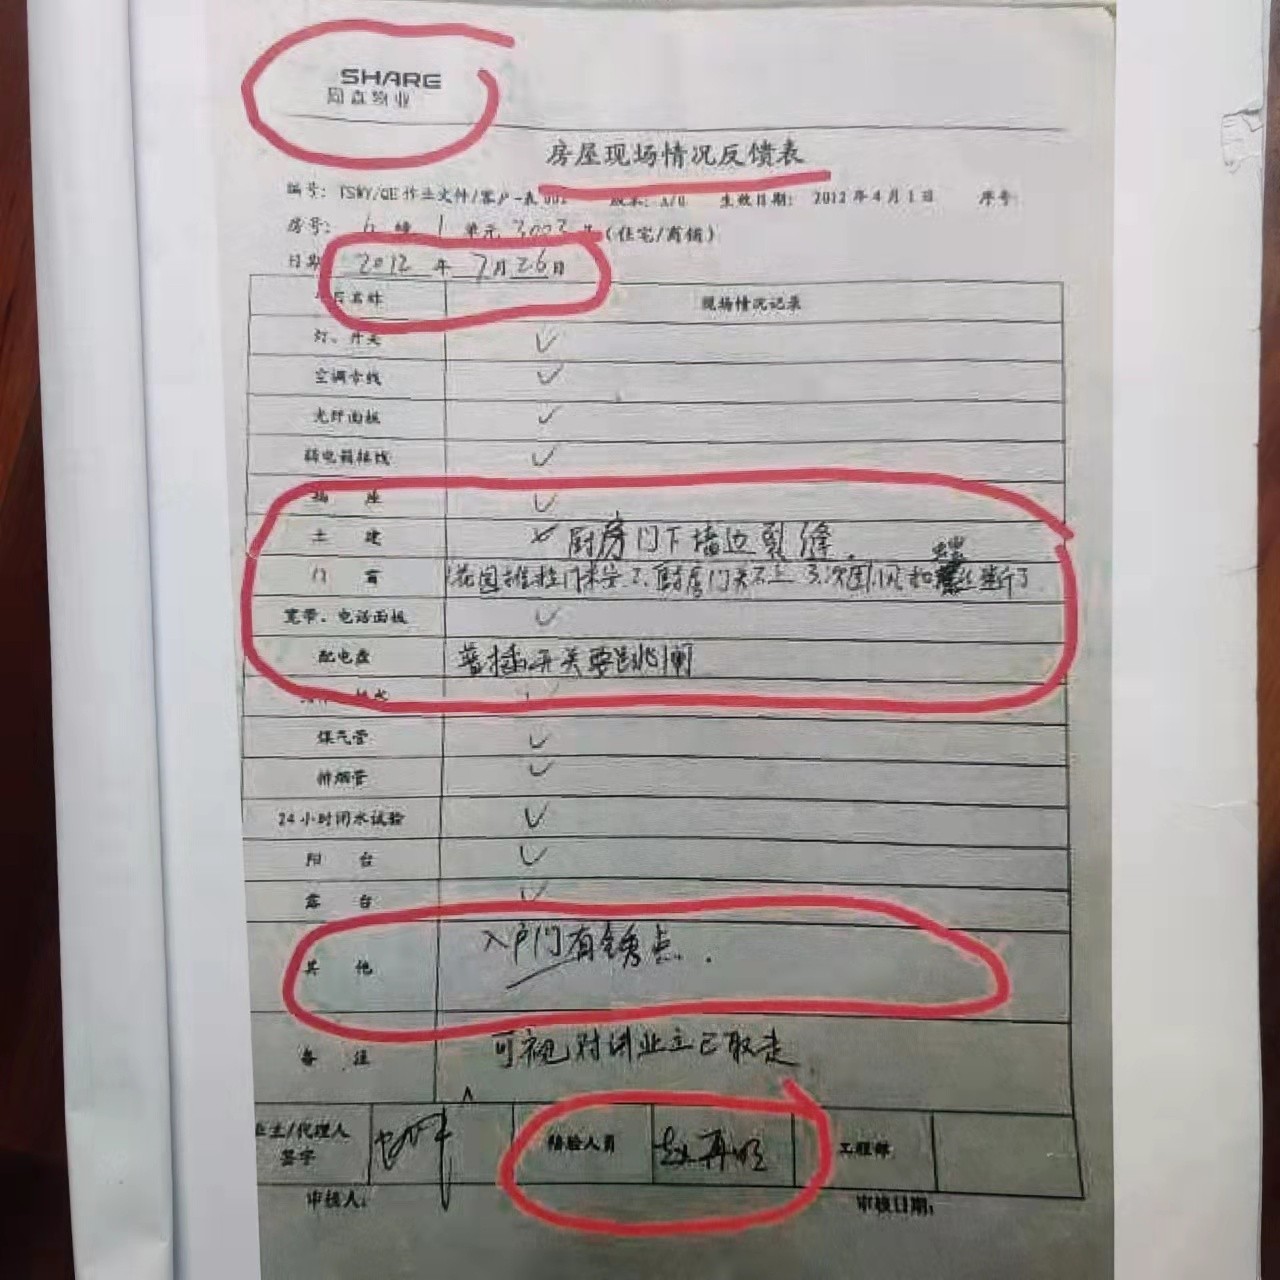 SHARE
同森物业
房屋现场情况反馈表
编号：TSWY/QE作业文件/客户-表002 版本：A/0 生效日期：2012年4月1日 序号
房号：6幢1单元3003号（住宅/商铺）
日期 2012年7月26日
项目名称 现场情况记录
灯、开关 ✓
空调穿线 ✓
光纤面板 ✓
弱电箱接线 ✓
插座 ✓
土建 × 厨房门下墙边裂缝.
门窗 1花园推拉门未安 2.厨房门关不上 3.次卧 断了
宽带、电话面板 ✓
配电盘 普插开关要跳闸
煤气管 ✓
排烟管 ✓
24小时闭水试验 ✓
阳台 ✓
露台 ✓
其他 入户门有锈点.
备注 可视对讲业主已取走
业主/代理人签字 陪验人员 赵再明 工程部
审核人： 审核日期：